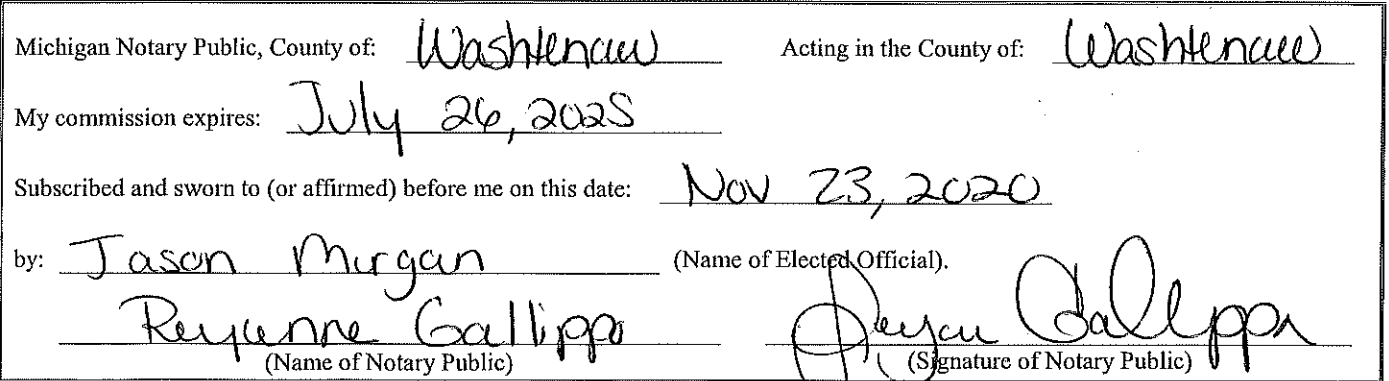 Michigan Notary Public, County of: Washtenaw Acting in the County of: Washtenaw
My commission expires: July 26, 2025
Subscribed and sworn to (or affirmed) before me on this date: Nov 23, 2020
by: Jason Morgan (Name of Elected Official).
Reyanne Gallippo
(Name of Notary Public) (Signature of Notary Public)